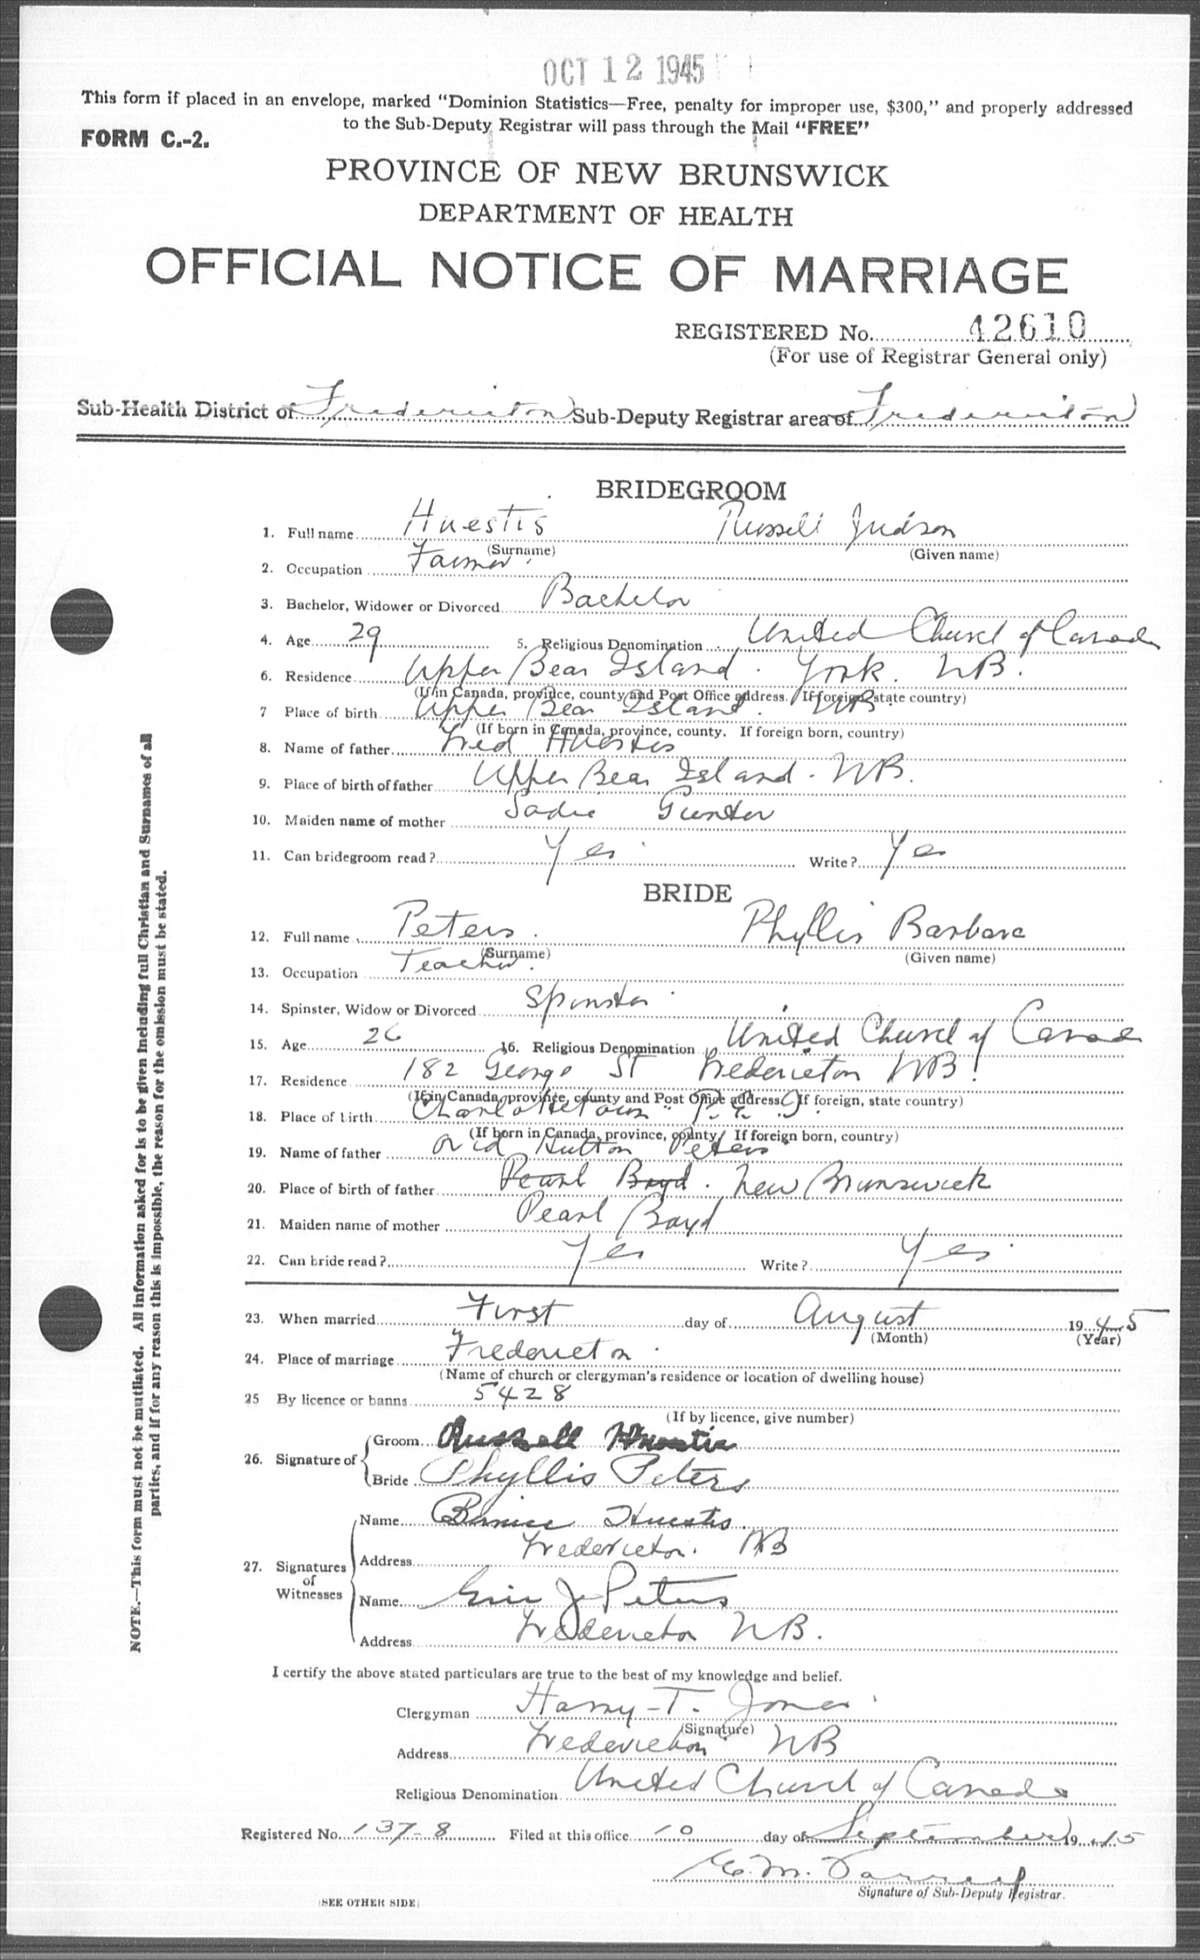 OCT 12 1945
This form if placed in an envelope, marked "Dominion Statistics—Free, penalty for improper use, $300," and properly addressed
to the Sub-Deputy Registrar will pass through the Mail "FREE"
FORM C.-2.
PROVINCE OF NEW BRUNSWICK
DEPARTMENT OF HEALTH
OFFICIAL NOTICE OF MARRIAGE
REGISTERED No. 42610
(For use of Registrar General only)
Sub-Health District of Fredericton Sub-Deputy Registrar area of Fredericton
BRIDEGROOM
1. Full name Huestis Russell Judson
(Surname) (Given name)
2. Occupation Farmer.
3. Bachelor, Widower or Divorced Bachelor
4. Age 29 5. Religious Denomination United Church of Canada
6. Residence Upper Bear Island. York. NB.
(If in Canada, province, county and Post Office address. If foreign, state country)
7 Place of birth Upper Bear Island. NB.
(If born in Canada, province, county. If foreign born, country)
8. Name of father Fred Huestis
9. Place of birth of father Upper Bear Island. NB.
10. Maiden name of mother Sadie Gunter
11. Can bridegroom read? Yes Write? Yes
BRIDE
12. Full name Peters. Phyllis Barbara
(Surname) (Given name)
13. Occupation Teacher.
14. Spinster, Widow or Divorced Spinster
15. Age 26 16. Religious Denomination United Church of Canada
17. Residence 182 George St Fredericton NB.
(If in Canada, province, county and Post Office address. If foreign, state country)
18. Place of birth Charlottetown P.E.I.
(If born in Canada, province, county If foreign born, country)
19. Name of father Ovid Hutton Peters
20. Place of birth of father Pearl Boyd. New Brunswick
21. Maiden name of mother Pearl Boyd
22. Can bride read? Yes Write? Yes
23. When married First day of August 1945
(Month) (Year)
24. Place of marriage Fredericton.
(Name of church or clergyman's residence or location of dwelling house)
25 By licence or banns 5428
(If by licence, give number)
26. Signature of Groom Russell Huestis
Bride Phyllis Peters
27. Signatures of Witnesses
Name Bernice Huestis.
Address Fredericton. NB
Name Eric J. Peters
Address Fredericton NB.
I certify the above stated particulars are true to the best of my knowledge and belief.
Clergyman Harry T. Jones
(Signature)
Address Fredericton NB
Religious Denomination United Church of Canada
Registered No. 137-8 Filed at this office 10 day of September 1945
E. M.
Signature of Sub-Deputy Registrar.
(SEE OTHER SIDE)
NOTE.—This form must not be mutilated. All information asked for is to be given including full Christian and Surnames of all
parties, and if for any reason this is impossible, the reason for the omission must be stated.